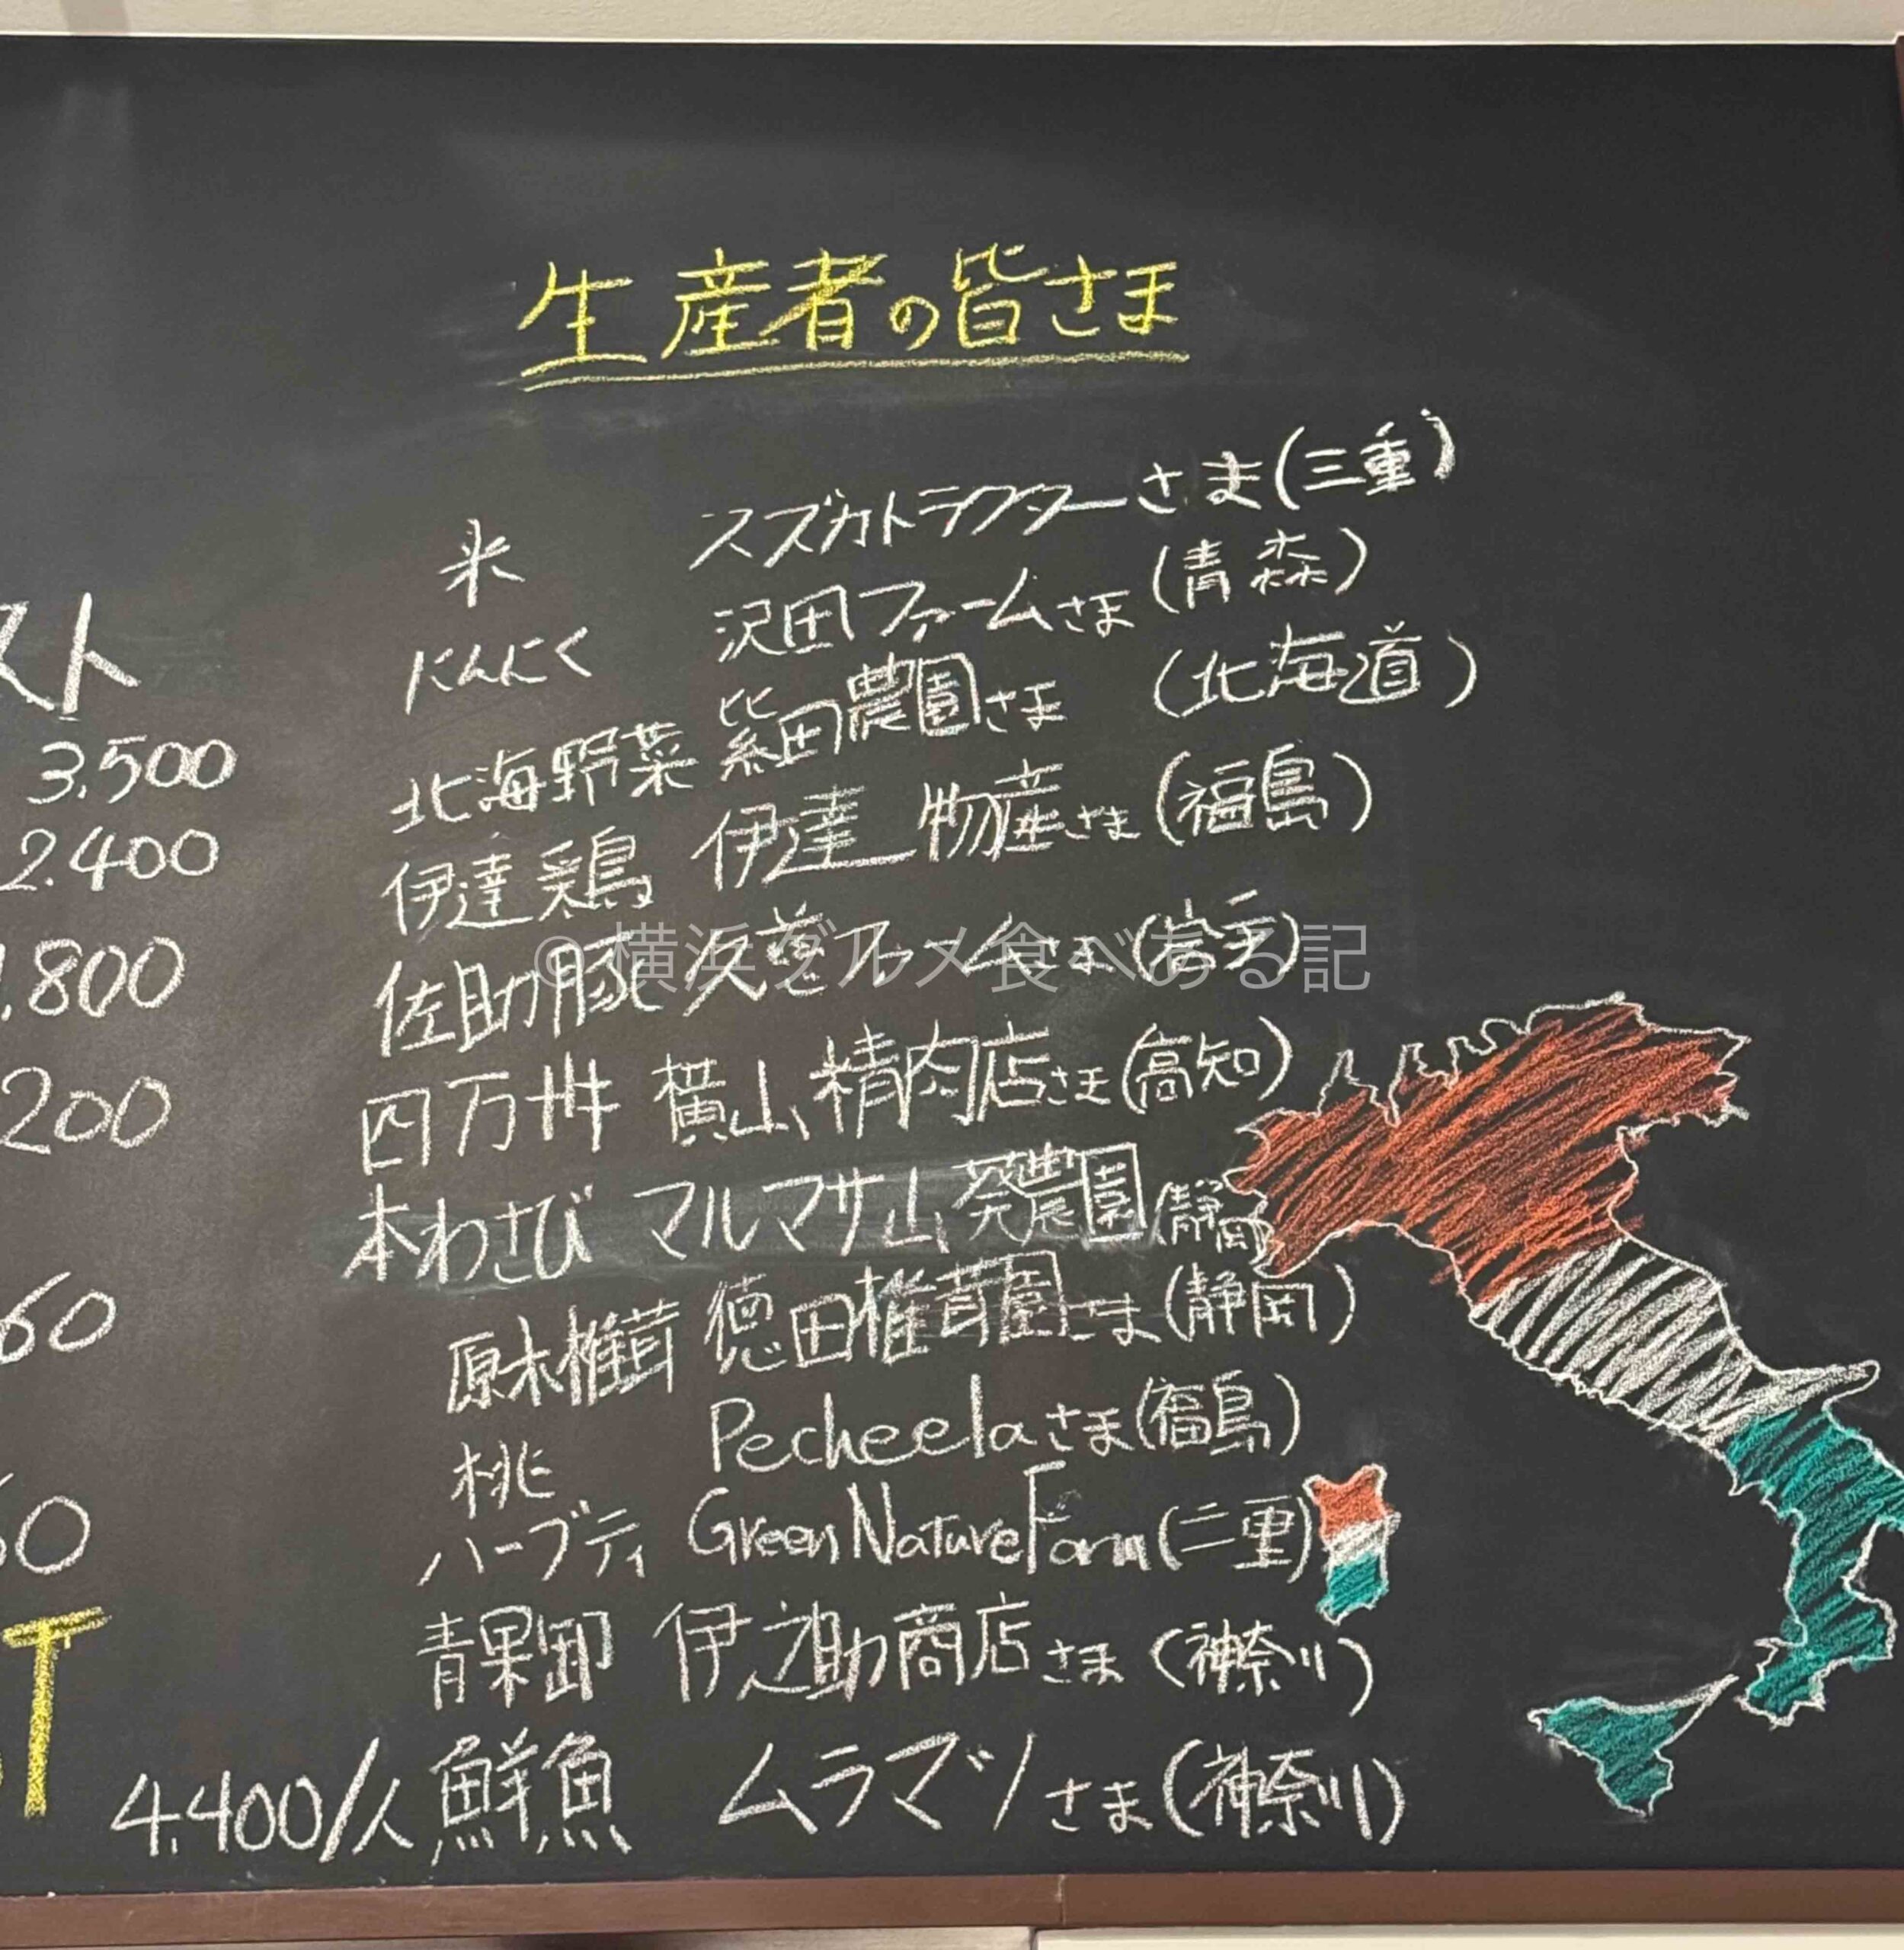 生産者の皆さま
米 スズカトラクターさま(三重)
にんにく 沢田ファームさま(青森)
北海野菜 柴田農園さま (北海道)
伊達鶏 伊達物産さま(福島)
佐助豚 久慈ファームさま(岩手)
四万十牛 横山精肉店さま(高知)
本わさび マルマサ山葵農園(静岡)
原木椎茸 徳田椎茸園さま(静岡)
桃 Pecheelaさま(福島)
ハーブティ Green Nature Farm(三重)
青果卸 伊之助商店さま(神奈川)
鮮魚 ムラマツさま(神奈川)
スト
3,500
2.400
,800
200
60
60
T
4,400/人
©横浜グルメ食べある記